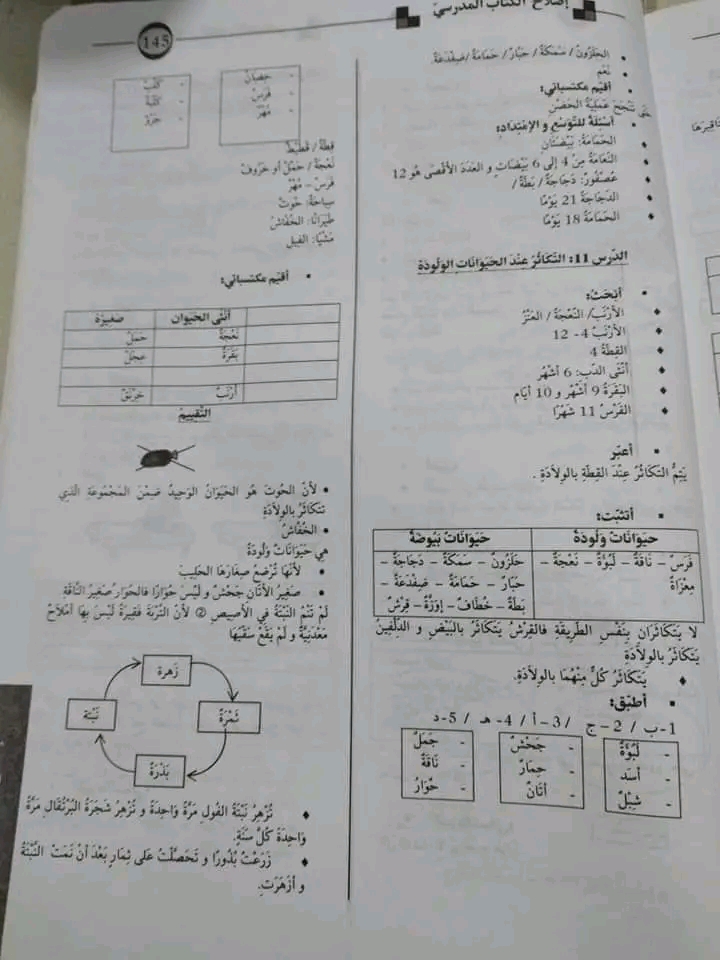 إصلاح الكتاب المدرسي
145
الحَلَزُونُ / سَمَكَةٌ / حَبَّارٌ / حَمَامَةٌ / ضِفْدَعَةٌ.
نَعَم
أقيّم مكتسباتي:
حَتَّى تَنْجَحَ عَمَلِيَّةُ الحَضْنِ
أسْئِلَةٌ للتَّوَسُّعِ و الإمْتِدَادِ:
الحَمَامَةُ: بَيْضَتَانِ
النَّعَامَةُ مِنْ 4 إلى 6 بَيْضَاتٍ و العَدَدُ الأَقْصَى هُوَ 12
عُصْفُورٌ: دَجَاجَةٌ / بَطَّةٌ /
الدَّجَاجَةُ 21 يَوْمًا
الحَمَامَةُ 18 يَوْمًا
الدّرس 11: التَّكَاثُرُ عِنْدَ الحَيَوَانَاتِ الوَلُودَةِ
أبْحَثُ:
الأَرْنَبُ / النَّعْجَةُ / العَنْزُ
الأَرْنَبُ 4- 12
القِطَّةُ 4
أُنْثَى الدُّبِّ: 6 أَشْهُرٍ
البَقَرَةُ 9 أَشْهُرٍ و 10 أيَّام
الفَرَسُ 11 شَهْرًا
أعبّر
يَتِمُّ التَّكَاثُرُ عِنْدَ القِطَّةِ بِالوِلاَدَةِ .
أتثبّت:
حَيَوَانَاتٌ وَلُودَةٌ
حَيَوَانَاتٌ بَيُوضَةٌ
فَرَسٌ – نَاقَةٌ – لَبُؤَةٌ – نَعْجَةٌ –
مِعْزَاةٌ
حَلَزُونٌ – سَمَكَةٌ – دَجَاجَةٌ –
حَبَّارٌ – حَمَامَةٌ – ضِفْدَعَةٌ –
بَطَّةٌ – خُطَّافٌ – إوَزَّةٌ – قِرْشٌ
لا يَتَكَاثَرَانِ بِنَفْسِ الطَّرِيقَةِ فالقِرْشُ يَتَكَاثَرُ بالبَيْضِ و الدُّلْفِينُ
يَتَكَاثَرُ بالوِلاَدَةِ
يَتَكَاثَرُ كُلٌّ مِنْهُمَا بالوِلاَدَةِ.
أطبّق:
1-ب / 2- ج / 3- أ / 4- هـ / 5-د
- لَبُؤَةٌ
- أسَد
- شِبْلٌ
- جَحْشٌ
- حِمَارٌ
- أتَانٌ
- جَمَلٌ
- نَاقَةٌ
- حُوَارٌ
- حِصَانٌ
- فَرَسٌ
- مُهْرٌ
- كَلْبٌ
- كَلْبَةٌ
- جَرْوٌ
قِطَّةٌ / قُطَيْطٌ
نَعْجَةٌ / حَمَلٌ أو خَرُوفٌ
فَرَسٌ – مُهْرٌ
سِبَاحَةً: حُوتٌ
طَيَرَانًا: الخُفَّاشُ
مَشْيًا: الفِيل
أقيّم مكتسباتي:
أنْثَى الحَيَوان
صَغِيرَهُ
نَعْجَةٌ
حَمَلٌ
بَقَرَةٌ
عِجْلٌ
أرْنَبٌ
خِرْنَقٌ
التَّقْيِيمُ
لأنَّ الحُوتَ هُوَ الحَيَوَانُ الوَحِيدُ ضِمْنَ المَجْمُوعَةِ الَّذِي
تتَكَاثَرُ بالوِلاَدَةِ
الخُفَّاشُ
هِيَ حَيَوَانَاتٌ وَلُودَةٌ
لأنَّهَا تُرْضِعُ صِغَارَهَا الحَلِيبَ
صَغِيرُ الأتَانِ جَحْشٌ و لَيْسَ حُوَارًا فالحُوَارُ صَغِيرُ النَّاقَةِ
لَمْ تَنْمُ النَّبْتَةُ فِي الأصِيصِ ② لأنَّ التُّرْبَةَ فَقِيرَةٌ لَيْسَ بِهَا أمْلاَحٌ
مَعْدَنِيَّةٌ و لَمْ يَقَعْ سَقْيُهَا
زَهرة
ثَمْرَةٌ
بَذْرَةٌ
نَبْتَة
تُزْهِرُ نَبْتَةُ الفُولِ مَرَّةً وَاحِدَةً و تُزْهِرُ شَجَرَةُ البُرْتُقَالِ مَرَّةً
وَاحِدَةً كُلَّ سَنَةٍ.
زَرَعْتُ بُذُورًا و تَحَصَّلْتُ عَلى ثِمَارٍ بَعْدَ أنْ نَمَتْ النَّبْتَةُ
و أزْهَرَتِ.